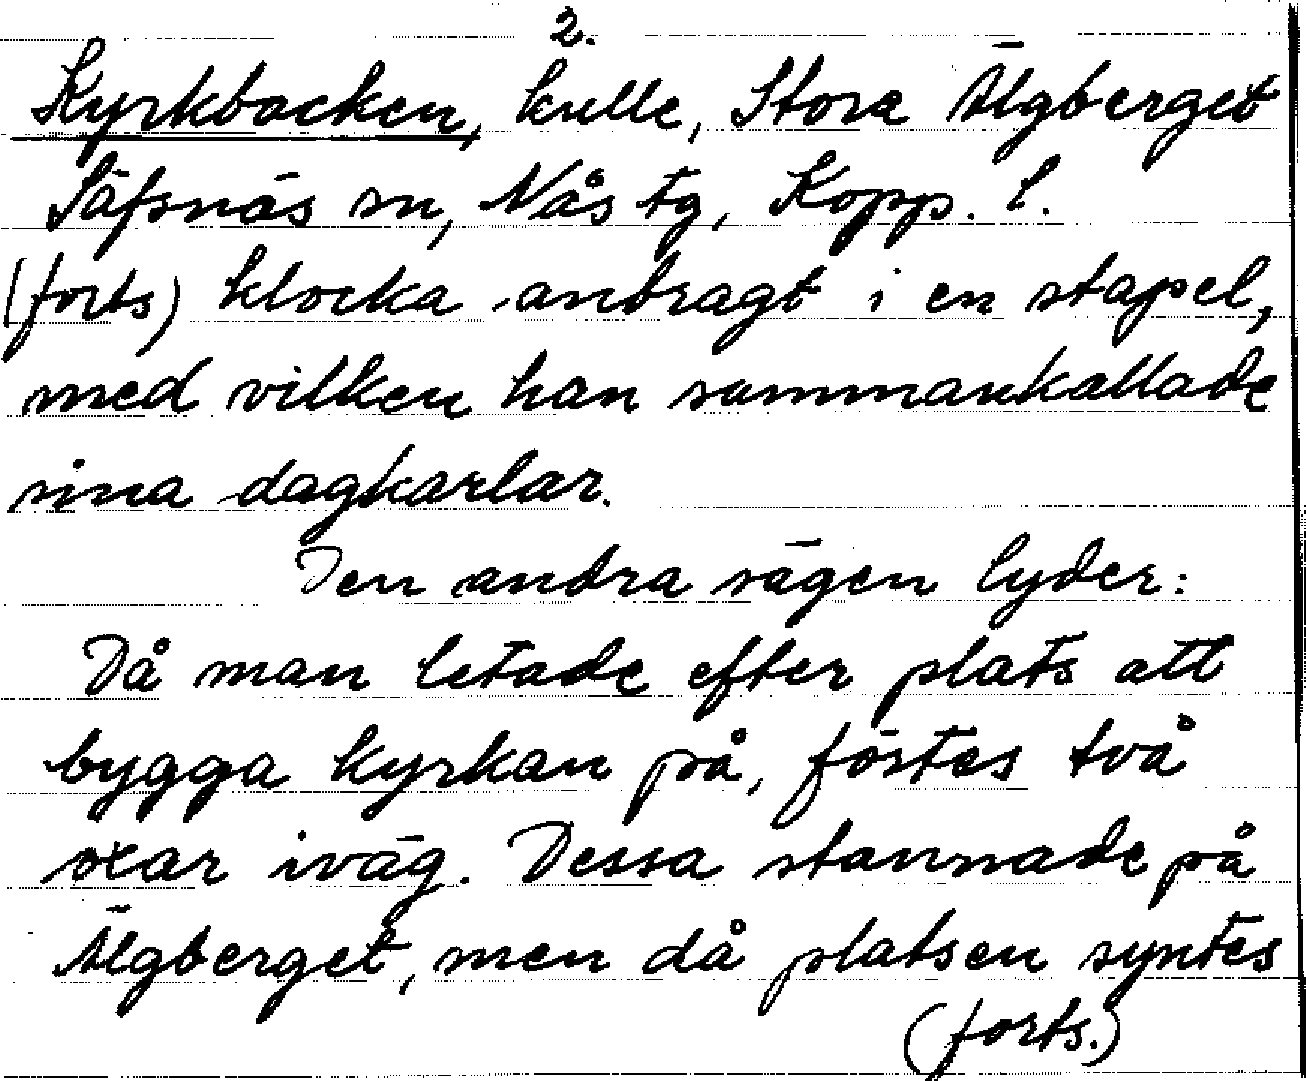 2.
Kyrkbacken, kulle, Stora Älgberget
Säfsnäs sn, Nås tg, Kopp. l.
(forts) klocka anbragt i en stapel,
med vilken han sammankallade
sina dagkarlar.
Den andra sägen lyder:
Då man letade efter plats att
bygga kyrkan på, föstes två
oxar iväg. Dessa stannade på
Älgberget, men då platsen syntes
(forts.)